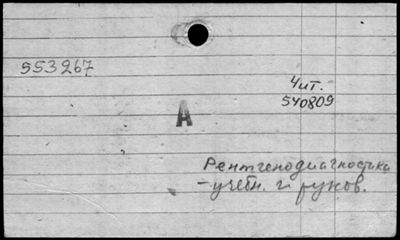 553267
Чит.
540809
А
Рентгенодиагностика
- учебн. и руков.